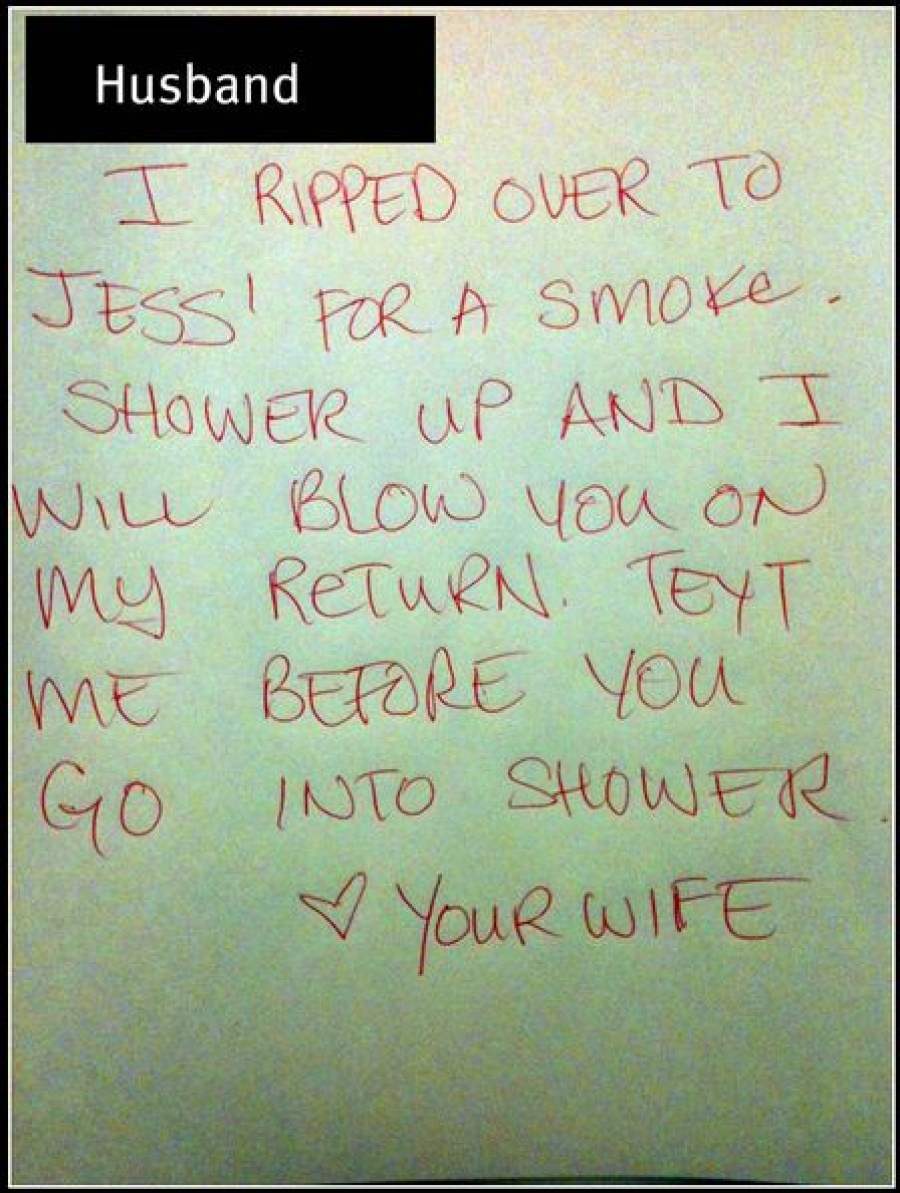 Husband
I RIPPED OVER TO
JESS' FOR A SMOKe.
SHOWER UP AND I
WILL BLOW YOU ON
MY ReTURN. TEXT
ME BEFORE YOU
GO INTO SHOWER.
♡ YOUR WIFE